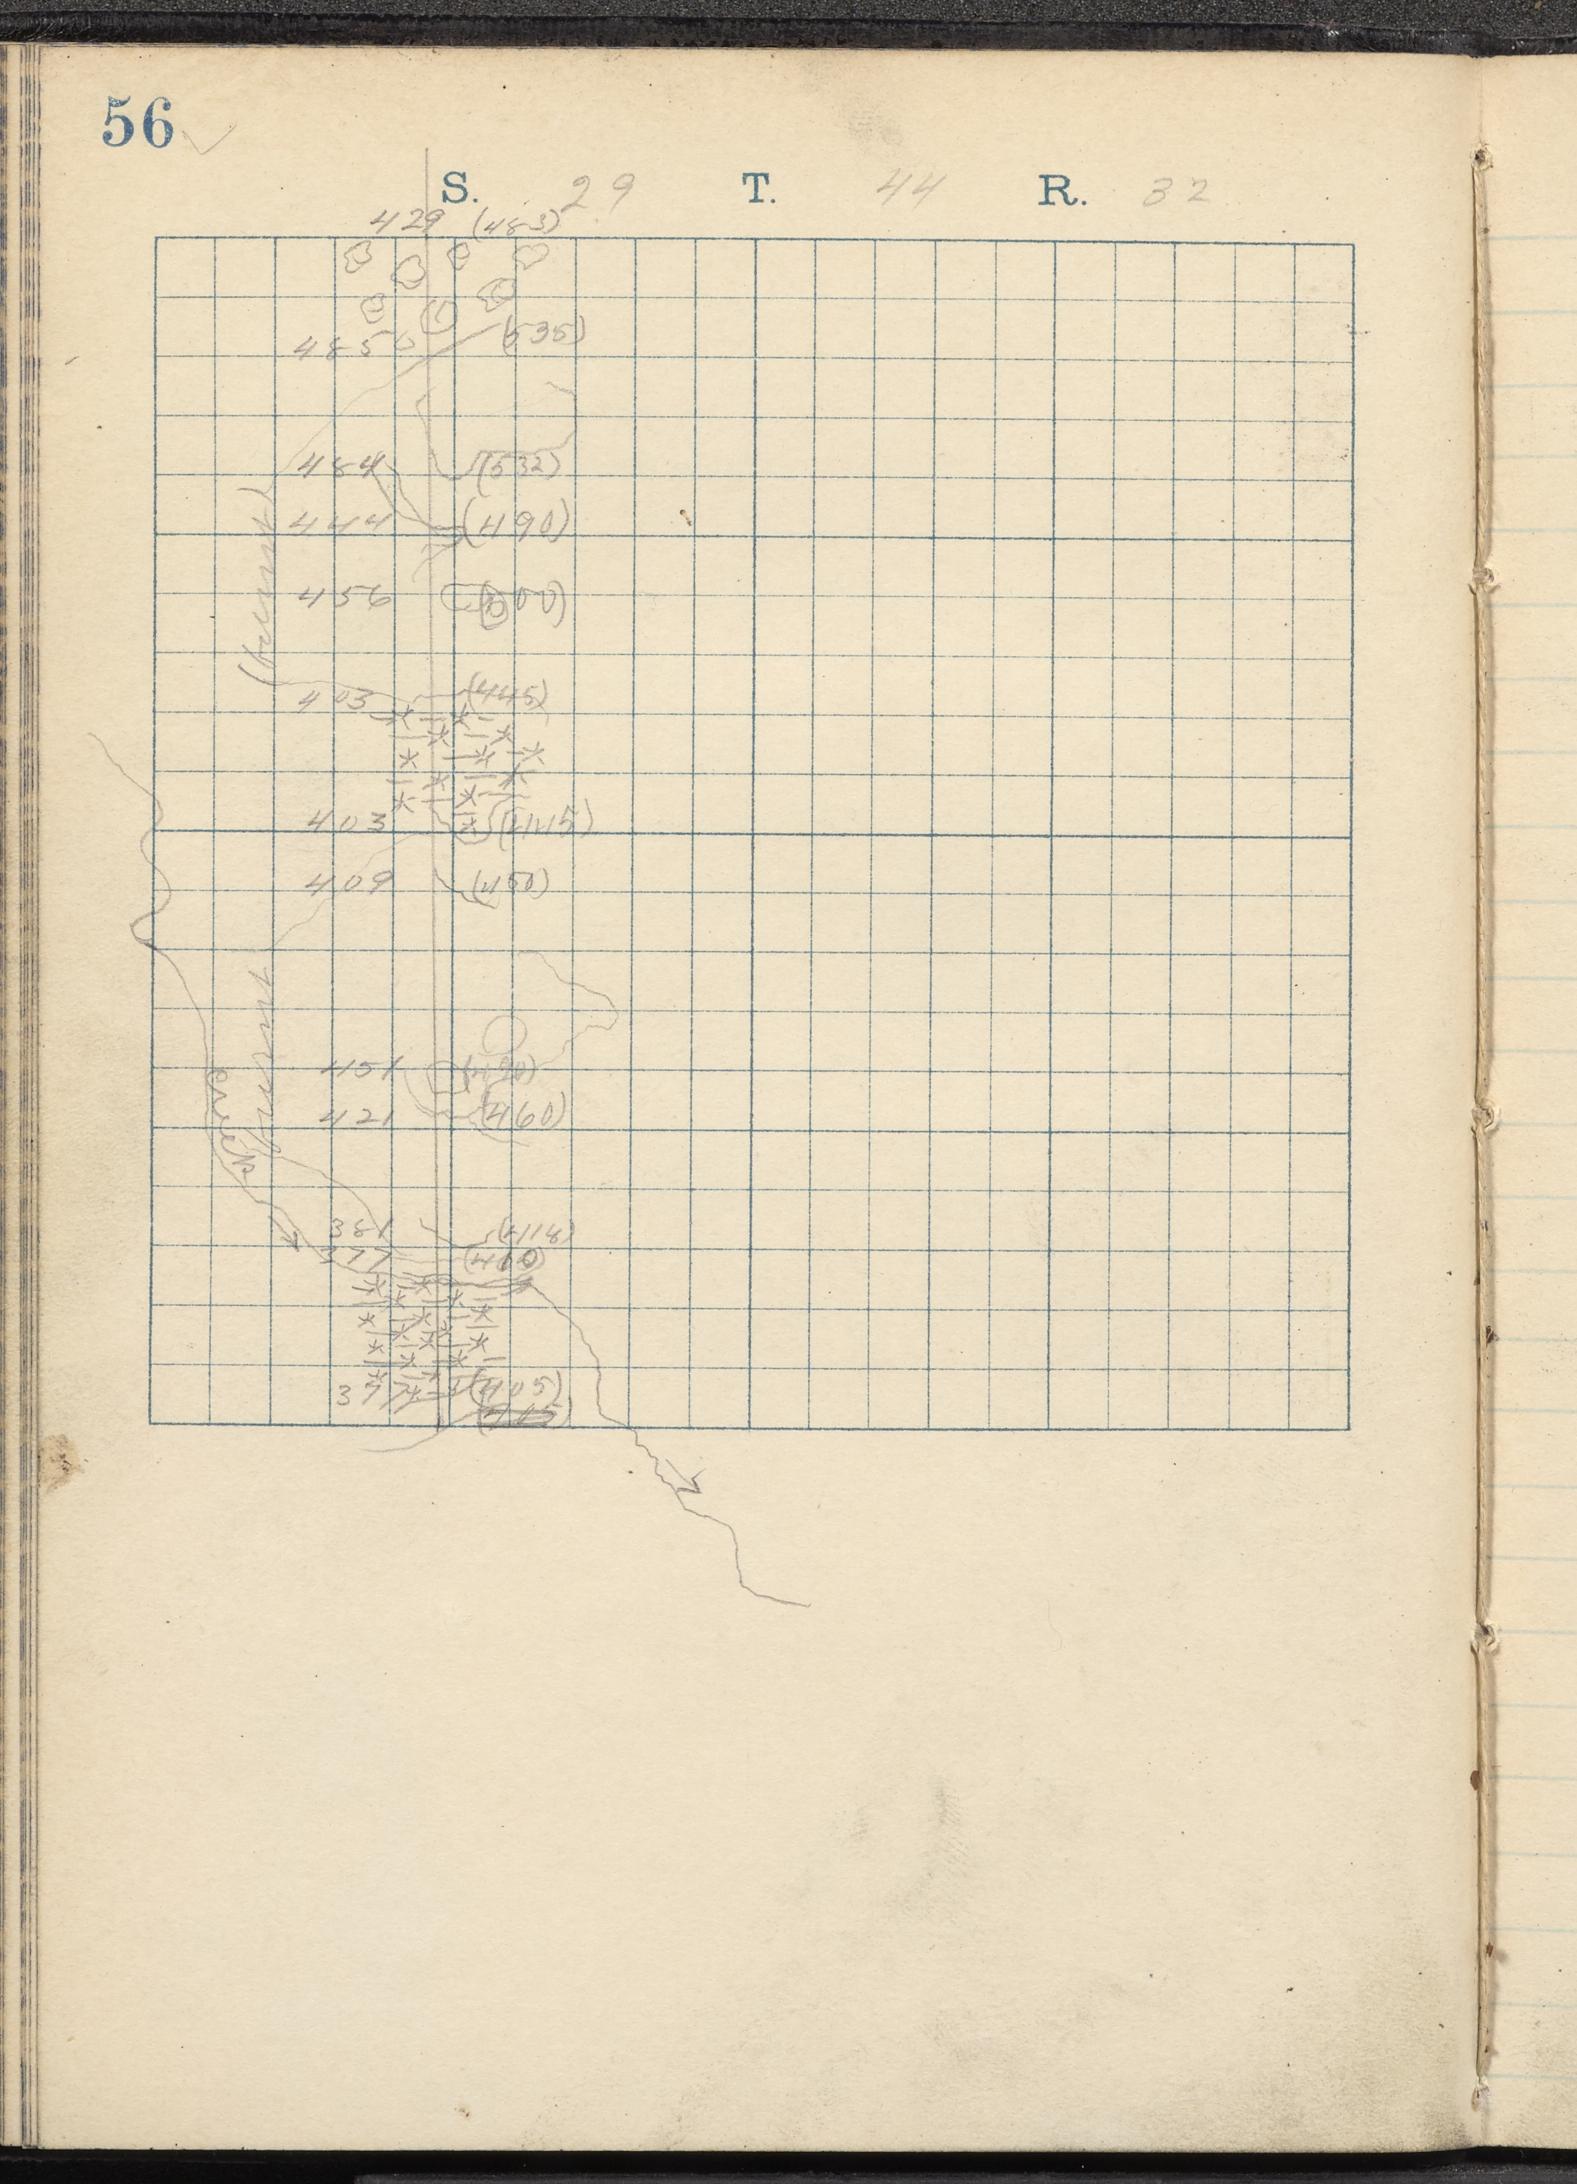 56
S. 29 T. 44 R. 32
429 (483)
485 (535)
484 (532)
444 (490)
456 (500)
403 (445)
403 (445)
409 (450)
451 (490)
421 (460)
creek
381 (418)
377 (410)
377 (405)